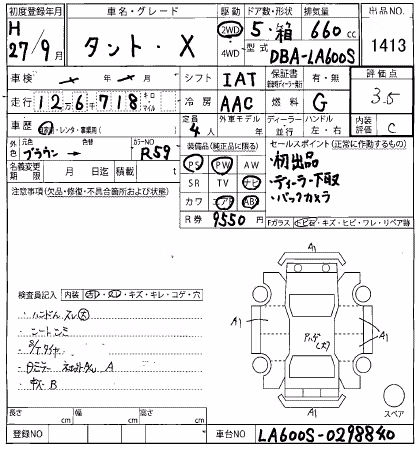 初度登録年月 車名・グレード 駆動 ドア数・形状 排気量 出品NO.
H 27/9月 タント・X 2WD 4WD 5・箱 660 cc 1413
型式 DBA-LA600S
車検 年 月 シフト IAT 保証書 有・無 評価点
走行 12万6千718 キロ マイル 冷房 AAC 燃料 G 3.5
車歴 自家用・レンタ・事業用( ) 定員 4人 ディーラー 並行 ハンドル 左・右 内装評価 C
外色 元色 ブラウン 色替 カラーNO R59 装備品(純正品に限る) セールスポイント(正常に作動するもの)
名義変更期限 月 日迄 積載 t PS PW AW ・初出品
注意事項(欠品・修復・不具合箇所および状態) SR TV ナビ ・ディーラー下取
カワ エアB ABS ・バックカメラ
R券 9550 円 Fガラス トビ石・キズ・ヒビ・ワレ・リペア跡
A1
検査員記入 内装 キズ・キレ・コゲ・穴
・ハンドルスレ大
・シートシミ
S/Tタイヤ
A
・キズ B
A1 A1
A1
スペア
長さ cm 幅 cm 高さ cm
登録NO 車台NO LA600S-0298840